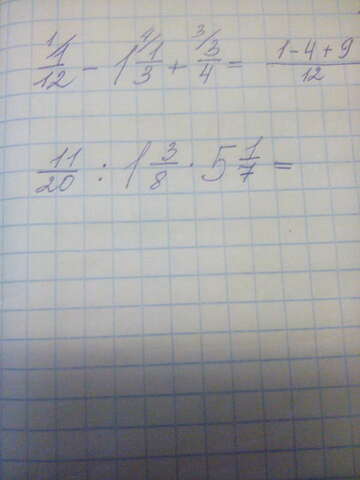 1/ 1/12 - 1 4/ 1/3 + 3/ 3/4 = (1-4+9)/12
11/20 : 1 3/8 · 5 1/7 =